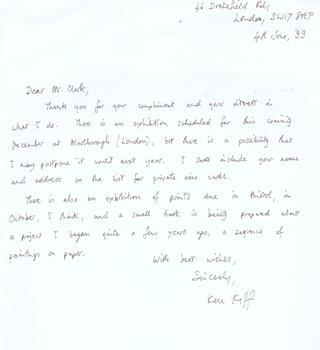 46 Drakefield Rd,
London, SW17 8RP
4th June, '99
Dear Mr. Clark,
Thank you for your compliment and your interest in
what I do. There is an exhibition scheduled for this coming
December at Marlborough (London), but there is a possibility that
I may postpone it until next year. I shall include your name
and address on the list for private view cards.
There is also an exhibition of prints due in Bristol, in
October, I think, and a small book is being prepared about
a project I began quite a few years ago, a sequence of
paintings on paper.
With best wishes,
Sincerely,
Ken Kiff